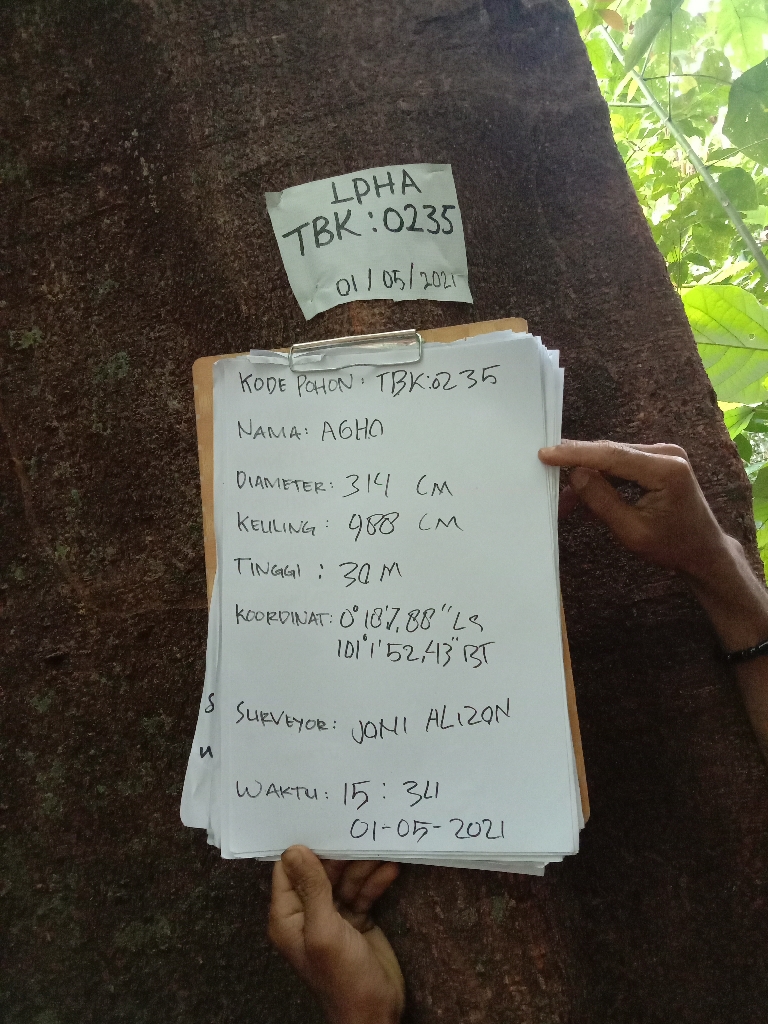 LPHA
TBK:0235
01/05/2021
KODE POHON: TBK:0235
NAMA: AGHO
DIAMETER: 314 CM
KELILING: 988 CM
TINGGI: 30 M
KOORDINAT: 0°18'7,88" LS
101°1'52,43" BT
SURVEYOR: JONI ALIZON
WAKTU: 15:34
01-05-2021